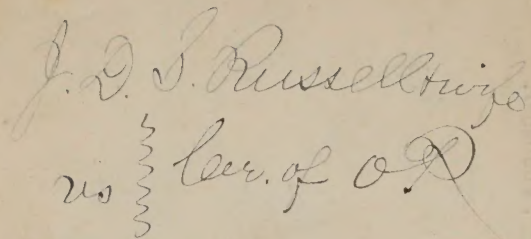 J. D. S. Russell & wife
vs Cer. of OP